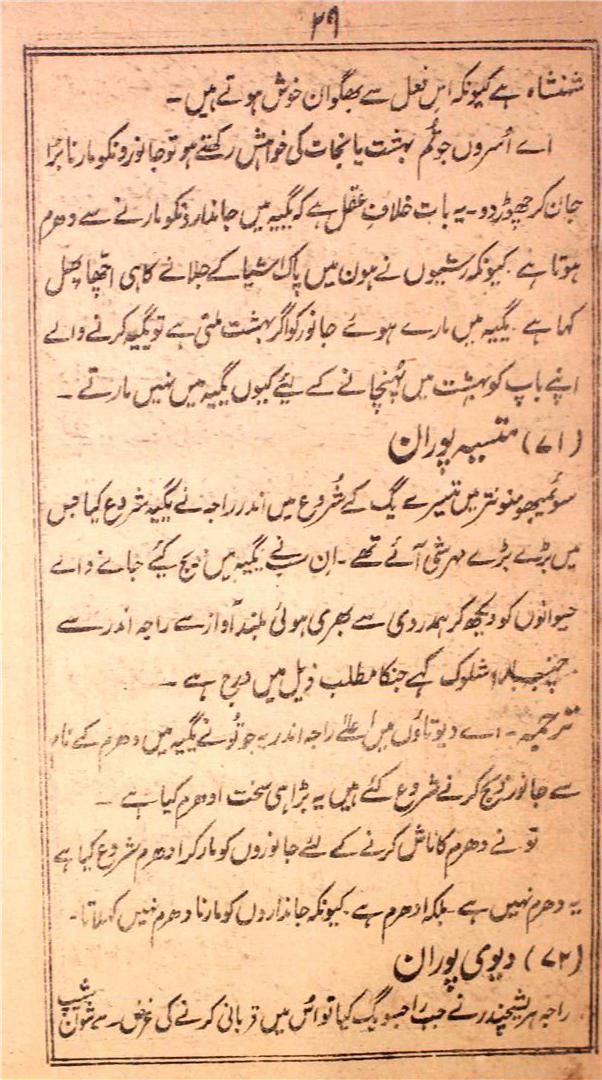 ۲۹
شہنشاہ ہے کیونکہ اس فعل سے بھگوان خوش ہوتے ہیں۔
اے اُسروں جو تُم بہشت یا نجات کی خواہش رکھتے ہو تو جانورونکو مارنا بُرا
جان کر چھوڑ دو۔ یہ بات خلافِ عقل ہے کہ یگیہ میں جاندارونکو مارنے سے دھرم
ہوتا ہے۔ کیونکہ رشیوں نے ہون میں پاک اشیا کے جلانے کا ہی اچھا پھل
کہا ہے۔ یگیہ میں مارے ہوئے جانور کو اگر بہشت ملتی ہے تو یگیہ کرنے والے
اپنے باپ کو بہشت میں پُہنچانے کے لیئے کیوں یگیہ میں نہیں مارتے۔
(۷۱) متسیہ پوران
سوئمبھو منونتر میں تیسرے یگ کے شُروع میں اندر راجہ نے یگیہ شروع کیا جس
میں بڑے بڑے مہرشی آئے تھے۔ ان سب نے یگیہ میں ذبح کیئے جانے والے
حیوانوں کو دیکھ کر ہمدردی سے بھری ہوئی بلند آواز سے راجہ اندر سے
چند شلوک کہے جنکا مطلب ذیل میں درج ہے۔
ترجمہ۔ اے دیوتاؤں میں اعلےٰ راجہ اندر یہ جو تُونے یگیہ میں دھرم کے نام
سے جانور ذبح کرنے شروع کئے ہیں یہ بڑا ہی سخت ادھرم کیا ہے۔
تو نے دھرم کا ناش کرنے کے لئے جانوروں کو مار کر ادھرم شروع کیا ہے
یہ دھرم نہیں ہے۔ بلکہ ادھرم ہے۔ کیونکہ جانداروں کو مارنا دھرم نہیں کہلاتا۔
(۷۲) دیوی پوران
راجہ ہریشچندر نے جب راجسو یگ کیا تو اُس میں قربانی کرنے کی غرض سے شون شیپ